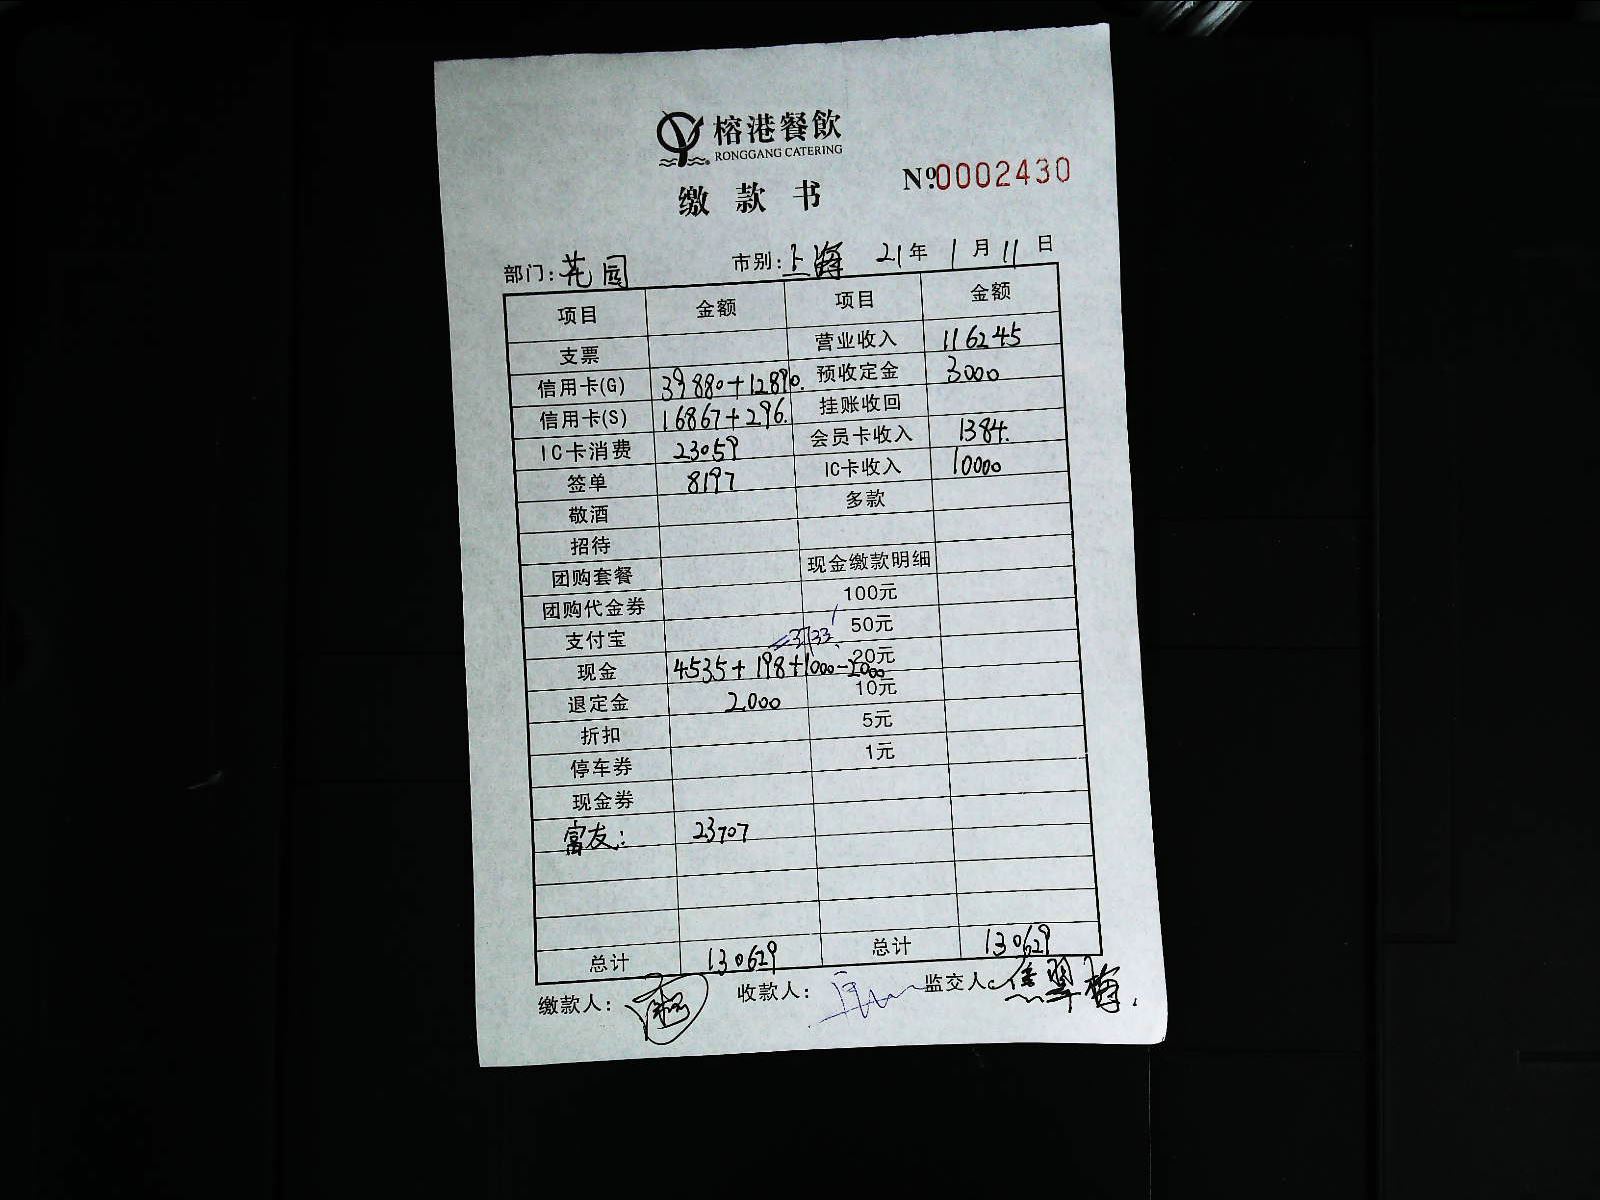 榕港餐飲
RONGGANG CATERING
缴款书
№0002430
部门:花园 市别:上海 21年1月11日
项目 金额 项目 金额
支票 营业收入 116245
信用卡(G) 39880+12890. 预收定金 3000
信用卡(S) 16867+296. 挂账收回
IC卡消费 23059 会员卡收入 1384.
签单 8197 IC卡收入 10000
敬酒 多款
招待
团购套餐 现金缴款明细
团购代金券 100元
支付宝 =3733 50元
现金 4535+198+1000-2000 20元
退定金 2000 10元
折扣 5元
停车券 1元
现金券
富友: 23707
总计 130629 总计 130629
缴款人: 收款人: 监交人: